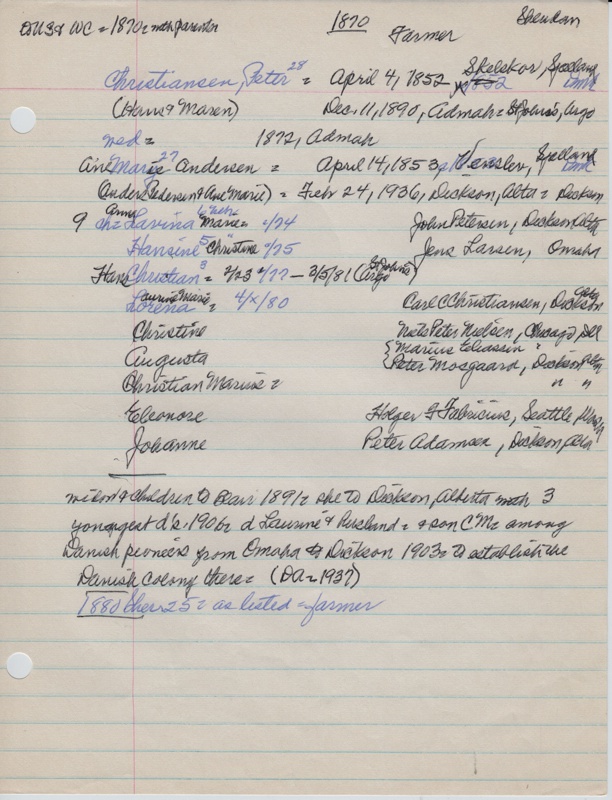 DUS & WC = 1870 = with parents 1870 Sheridan
Farmer
Christiansen, Peter 28 = April 4, 1852 Skelskor, Sjelland
(Hans & Maren) Dec. 11, 1890, Admah = St Johns, Argo
wed = 1872, Admah
Ane Marie 27 Andersen = April 14, 1853 Sjelland
(Anders Pedersen & Ane Marie) = Febr 24, 1936, Dickson, Alta = Dickson
9 ch = Anna Lavina 6 Marie = 2/74 John Petersen, Dickson Alta
Hansine 5 Christine 2/75 Jens Larsen, Omaha
Hans Christian 3 = 2/23 77 - 3/5/81 (St Johns Argo)
Lorena Laurine Marie = 4/x/80 Carl C Christiansen, Dickson
Christine Niels Peter Nielsen, Chicago, Ill
Augusta {Marius Eliassen "
{Peter Mosgaard, Dickson Alta
Christian Marius = " "
Eleonore Holger F Fabricius, Seattle, Wash
Johanne Peter Adamsen, Dickson, Alta
widow & children to Blair 1891 = she to Dickson, Alberta with 3
youngest d's, 1906 = d Laurine & husband = & son CM = among
Danish pioneers from Omaha to Dickson 1903 = to establish the
Danish colony there = (DA = 1937)
1880 Cher 25 = as listed = farmer